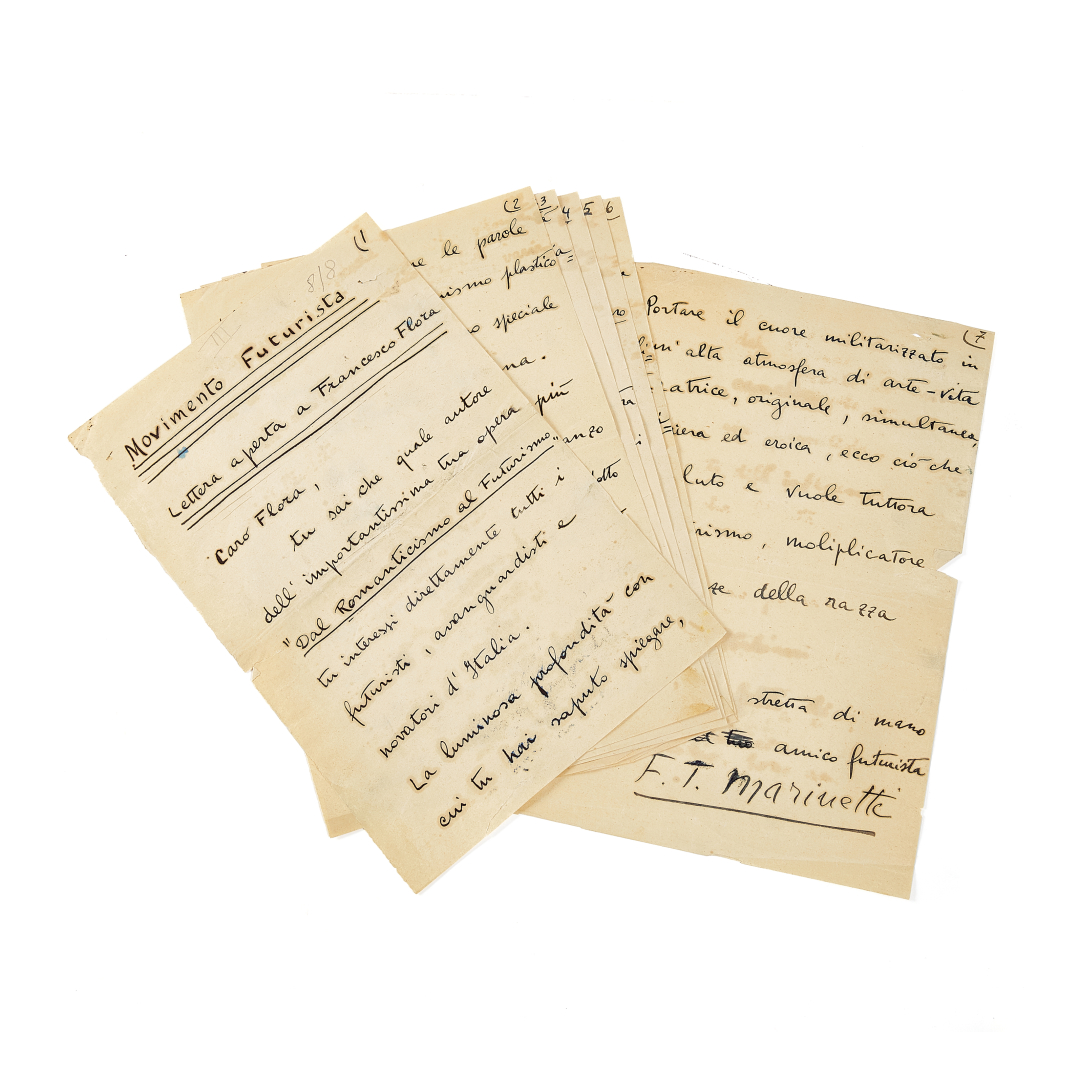 (1
8/8
III
Movimento Futurista
Lettera aperta a Francesco Flora
Caro Flora,
tu sai che quale autore
dell'importantissima tua opera
"Dal Romanticismo al Futurismo"
tu interessi direttamente tutti i
futuristi, avanguardisti e
novatori d'Italia.
La luminosa profondità con
cui tu hai saputo spiegare,
(2
le parole
plastico
speciale
più
(3
4
5
6
(7
Portare il cuore militarizzato in
un'alta atmosfera di arte-vita
originale, simultanea,
ed eroica, ecco ciò che
e vuole tuttora
moliplicatore
della razza
stretta di mano
amico futurista
F. T. Marinetti